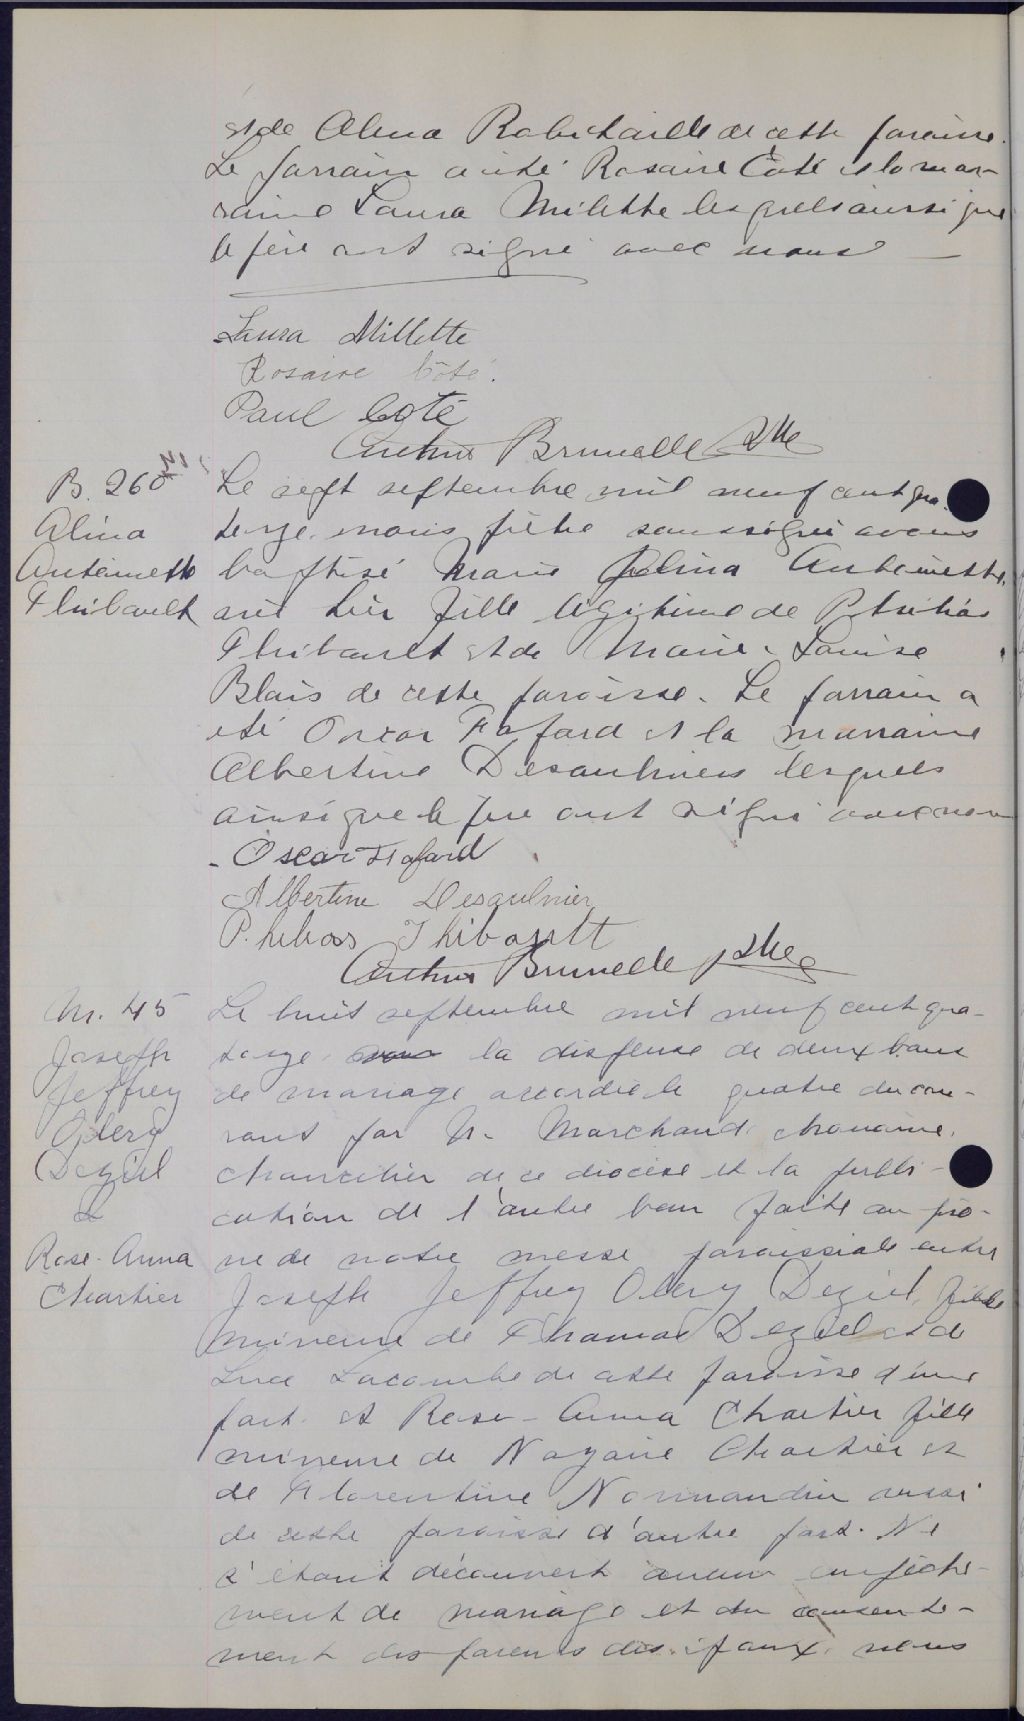 et de Alma Robichaille de cette paroisse.
Le parrain a été Rosaire Côté et la mar-
raine Laura Milette lesquels ainsi que
le père ont signé avec nous
Laura Millette
Rosaire Côté.
Paul Coté
Arthur Brunelle Ptre
B. 260
Alina
Antoinette
Thibault
Le sept septembre mil neuf cent qua-
torze, nous prêtre soussigné avons
baptisé Marie Alina Antoinette,
née hier fille légitime de
Thibault et de Marie-Louise
Blais de cette paroisse. Le parrain a
été Oscar Fafard et la marraine
Albertine Desaulniers lesquels
ainsi que le père ont signé avec nous
Oscar Fafard
Albertine Desaulnier
Thibault
Arthur Brunelle Ptre
M. 45
Joseph
Jeffrey
Olery
Deziel
&
Rose-Anna
Chartier
Le huit septembre mil neuf cent qua-
torze, la dispense de deux bans
de mariage accordée le quatre du cou-
rant par M. Marchand chanoine,
chancelier de ce diocèse et la publi-
cation de l'autre ban faite au prô-
ne de notre messe paroissiale entre
Joseph Jeffrey Olery Deziel, fils
mineur de Thomas Deziel et de
Luce Lacombe de cette paroisse d'une
part et Rose-Anna Chartier fille
mineure de Nazaire Chartier et
de Florentine Normandin aussi
de cette paroisse d'autre part. Ne
s'étant découvert aucun empêche-
ment de mariage et du consente-
ment des parents des époux, nous